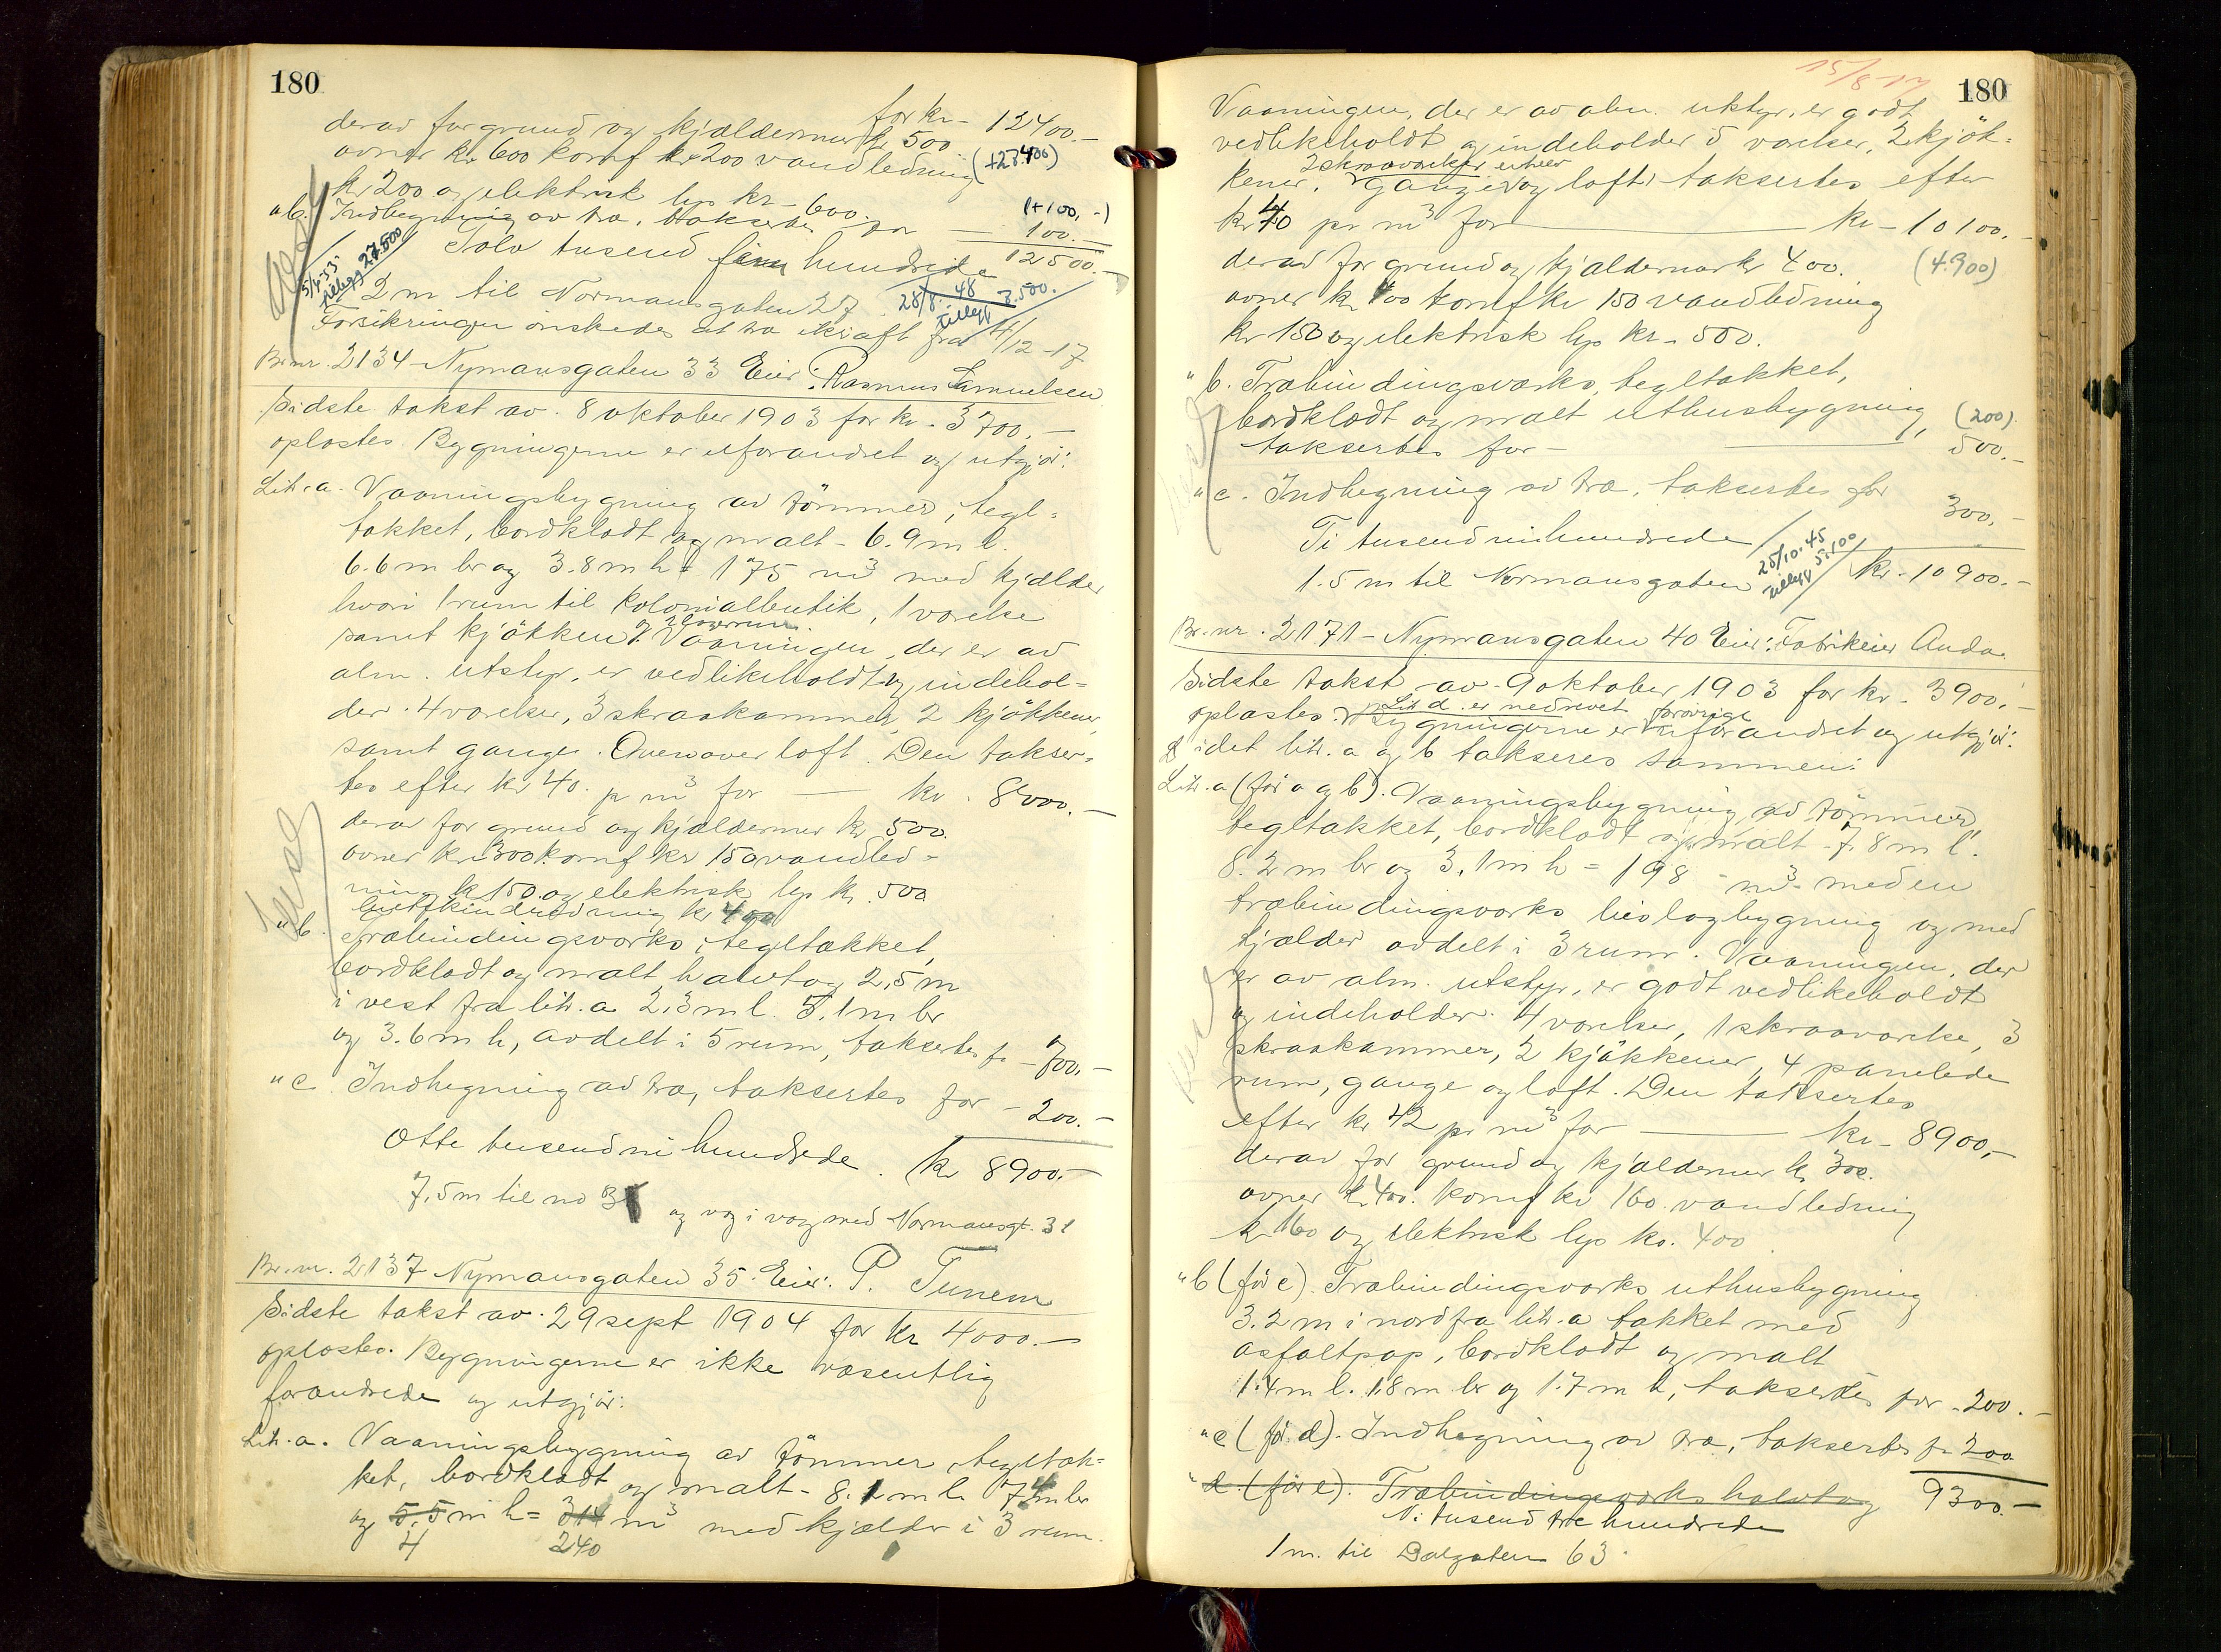 180
for kr - 12400.-
derav for grund og kjældermur kr 500
ovner kr. 600 komf kr 200 vandledning (+23400)
kr 200 og elektrisk lys kr - 600.
(+100,-)
" b. Indhegning av træ, takseret for — 100.-
Tolv tusend fem hundrede 12500.-
5/4-55 tillegg 27.500
2 m til Normansgaten 27 28/8.48 tillegg 8.500.
Forsikringen önskedes at træ i kraft fra 4/12-17
Br.nr. 2134 - Nymansgaten 33 Eier: Rasmus Samuelsen
Sidste takst av 8 oktober 1903 for kr. 3700.-
oplæstes. Bygningerne er uforandret og utgjör:
Litr. a. Vaaningsbygning av tömmer, tegl-
takket, bordklædt og malt - 6.9 m l.
6.6 m br og 3.8 m h = 175 m³ med kjælder
hvori 1 rum til kolonialbutik, 1 værelse
samt kjökken. Vaaningen, der er av
alm. utstyr, er vedlikeholdt og indehol-
der 4 værelser, 3 skraakammer, 2 kjökkener
samt ganger. Ovenover loft. Den takser-
tes efter kr 40. pr m³ for — kr. 8000.-
derav for grund og kjældermur kr 500.
ovner kr. 300 komf kr 150 vandled-
ning kr 150. og elektrisk lys kr. 500
kr 400
" b. Træbindingsværks, tegltækket,
bordklædt og malt halvtag 2,5 m
i vest fra litr. a 2,3 m l. 5,1 m br
og 3.6 m h, avdelt i 5 rum, taksertes fr - 700.-
" c. Indhegning av træ, taksertes for - 200.-
Otte tusend ni hundrede. kr 8900.-
7,5 m til no 3
og væg i væg med Normansgt. 31
Br.nr. 2137 Nymansgaten 35. Eier: P. Tunem
Sidste takst av 29 sept 1904 for kr 4000.-
oplæstes. Bygningerne er ikke væsentlig
forandrede og utgjör:
Litr. a. Vaaningsbygning av tömmer, tegltæk-
ket, bordklædt og malt - 8.1 m l. 7.4 m br
og 5.5 m h = 314 m³ med kjælder i 3 rum.
4 240
15/8-17
180
Vaaningen, der er av alm. utstyr, er godt
vedlikeholdt og indeholder 5 værelser, 2 kjök-
2 skraaværelser
kener, ganger og loft. taksertes efter
kr 40 pr m³ for — kr - 10100.-
derav for grund og kjældermur kr 400. (4.900)
ovner kr 400 komf kr 150 vandledning
kr 150 og elektrisk lys kr - 500.
" b. Træbindingsværks, tegltækket,
bordklædt og malt uthusbygning, (200)
taksertes for - 500.-
" c. Indhegning av træ, taksertes for 300.-
Ti tusend ni hundrede
1.5 m til Normansgaten 25/10.45 tillegg 5.100 kr. 10900.-
Br.nr. 2171 - Nymansgaten 40 Eier: Fabrikeier Anda.
Sidste takst av 9 oktober 1903 for kr - 3900.-
Litr d. er nedrevet forövrig
oplæstes. Bygningerne er uforandret og utgjör:
idet litr. a og b takseres sammen:
Litr. a (för a og b). Vaaningsbygning av tömmer,
tegltækket, bordklædt og malt - 7.8 m l.
8.2 m br og 3.1 m h = 198 m³ med en
træbindingsværks bislagbygning og med
kjælder avdelt i 3 rum. Vaaningen, der
er av alm. utstyr, er godt vedlikeholdt
og indeholder 4 værelser, 1 skraaværelse, 3
skraakammer, 2 kjökkener, 4 panelede
rum, gange og loft. Den taksertes
efter kr 42 pr m³ for — kr - 8900,-
derav for grund og kjældermur kr 300.
ovner kr 400. komf kr 160. vandledning
kr 160 og elektrisk lys kr. 400
" b (för c). Træbindingsværks uthusbygning
3.2 m i nord fra litr. a takket med
asfaltpap, bordklædt og malt
1.4 m l. 1.8 m br og 1.7 m h, taksertes for - 200.-
" c (för d). Indhegning av træ, taksertes fr 200
" d. (för e). Træbindingsværks halvtag 9300.-
Ni tusend tre hundrede
1 m. til Dalgaten 63.